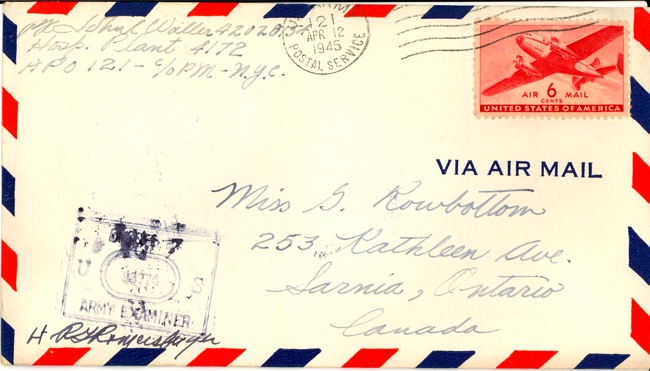 Pvt. John C Waller 42020134
Hosp. Plant 4172
APO 121 - c/o PM - N.Y.C.
ARMY
121
APR 12
1945
POSTAL SERVICE
AIR 6 MAIL
CENTS
UNITED STATES OF AMERICA
VIA AIR MAIL
Miss G. Rowbottom
253 Kathleen Ave.
Sarnia, Ontario
Canada
U S
ARMY EXAMINER